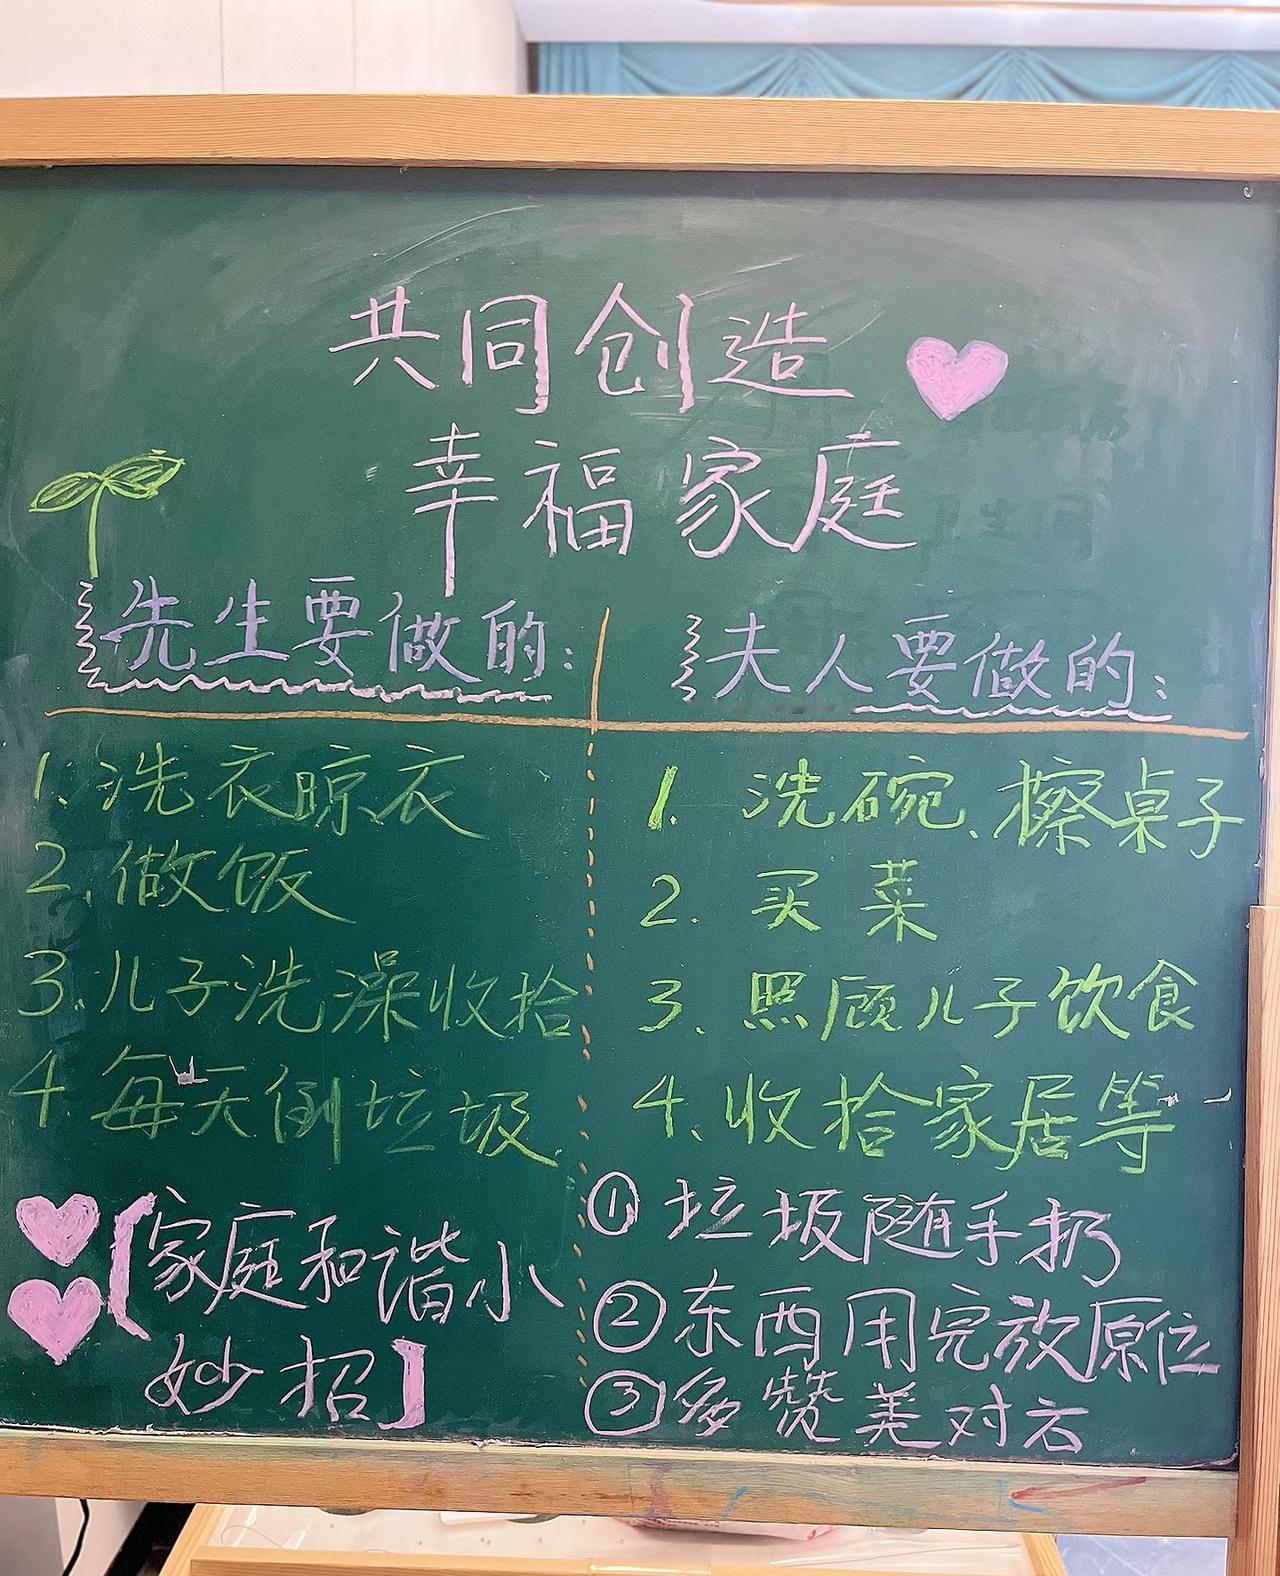 共同创造
幸福家庭
先生要做的:
1.洗衣晾衣
2.做饭
3.儿子洗澡收拾
4.每天倒垃圾.
夫人要做的:
1.洗碗、擦桌子
2.买菜
3.照顾儿子饮食
4.收拾家居等
【家庭和谐小
妙招】
①垃圾随手扔
②东西用完放原位
③多赞美对方